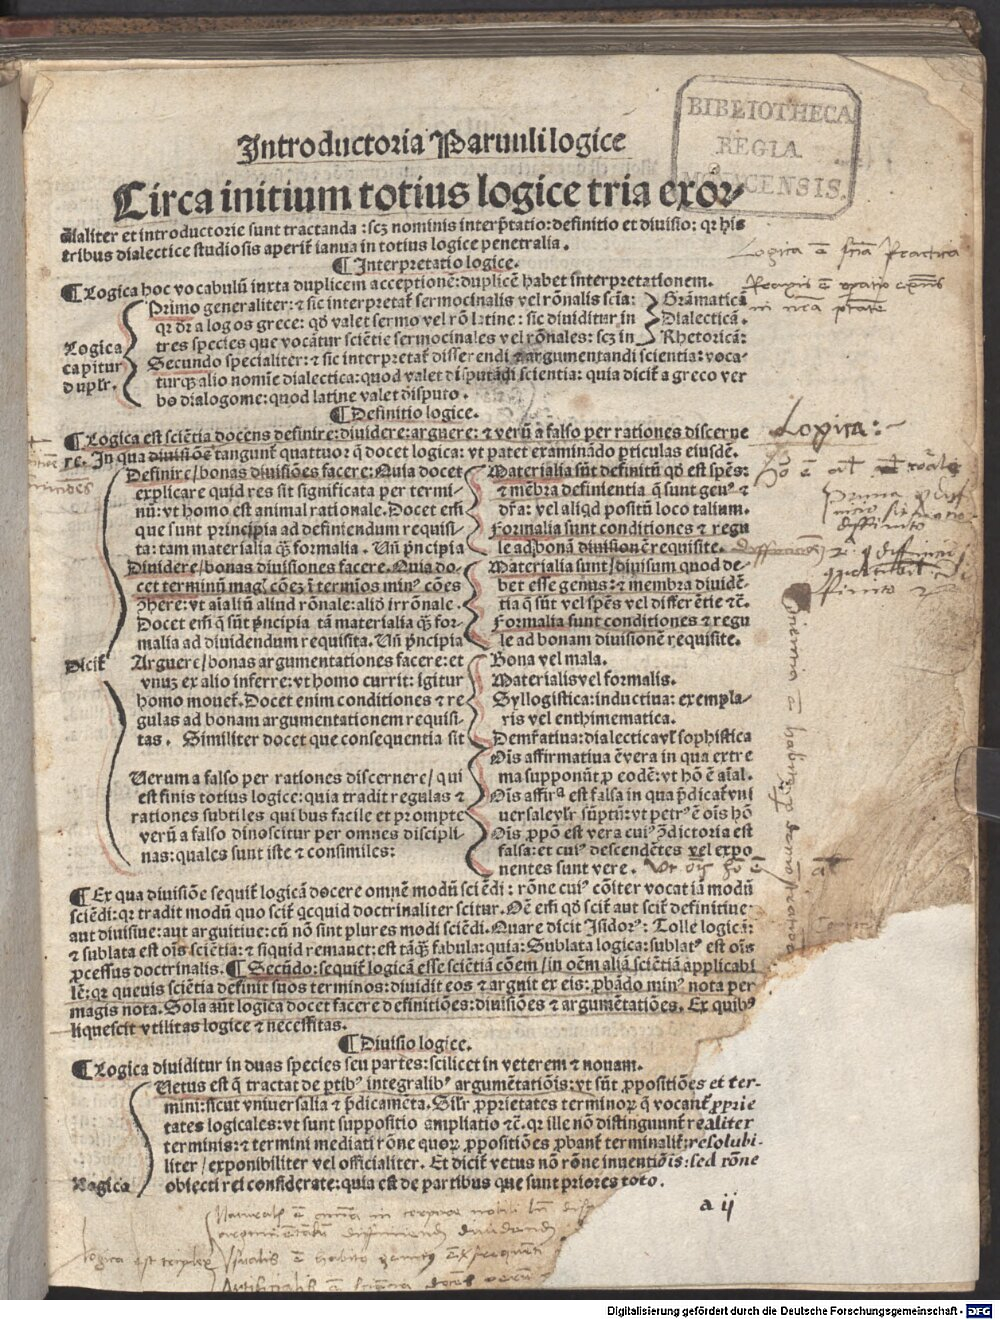 BIBLIOTHECA
REGIA
MONACENSIS.
Introductoria Paruuli logice
Circa initium totius logice tria exor-
dialiter et introductorie sunt tractanda: scꝫ nominis interp̄tatio: definitio et diuisio: qꝛ his
tribus dialectice studiosis aperit᷑ ianua in totius logice penetralia.
¶ Interpretatio logice.
¶ Logica hoc vocabulū iuxta duplicem acceptionē: duplicē habet interpretationem.
Logica
capitur
duplr.
Primo generaliter: ⁊ sic interpretat᷑ sermocinalis vel rōnalis scīa:
qꝛ dr̄ a logos grece: qd̄ valet sermo vel rō latine: sic diuiditur in
tres species que vocātur sciētie sermocinales vel rōnales: scꝫ in
Grāmaticā
Dialecticā.
Rhetoricā:
Secundo specialiter: ⁊ sic interpretat᷑ disserendi ⁊ argumentandi scientia: voca-
turqꝫ alio nomīe dialectica: quod valet disputādi scientia: quia dicit᷑ a greco ver
bo dialogome: quod latine valet disputo.
¶ Definitio logice.
¶ Logica est sciētia docens definire: diuidere: arguere: ⁊ verū a falso per rationes discerne
re. In qua diuisiōe tangunt᷑ quattuor q̄ docet logica: vt patet examinādo p̲ticulas eiusdē.
Dicit᷑
Definire/bonas diuisiōes facere: Quia docet
explicare quid res sit significata per termi-
nū: vt homo est animal rationale. Docet em̄
que sunt principia ad definiendum requisi-
ta: tam materialia qꝫ̄ formalia. Uñ p̄ncipia
Materialia sūt definitū qd̄ est spēs:
⁊ mēbra definientia q̄ sunt genꝰ ⁊
dr̄a: vel aliqd positū loco talium.
Formalia sunt conditiones ⁊ regu
le ad bonā diuisionē requisite.
Diuidere/bonas diuisiones facere. Quia do-
cet terminū magꝭ cōeꝫ ī termīos minꝰ cōes
ꝯhere: vt aīaliū aliud rōnale: aliō irrōnale.
Docet em̄ q̄ sūt p̄ncipia tā materialia qꝫ̄ for-
malia ad diuidendum requisita. Uñ p̄ncipia
Materialia sunt/diuisum quod de-
bet esse genus: ⁊ membra diuidē-
tia q̄ sūt vel spēs vel differētie ⁊c̄.
Formalia sunt conditiones ⁊ regu
le ad bonam diuisionē requisite.
Arguere/bonas argumentationes facere: et
vnuꝫ ex alio inferre: vt homo currit: igitur
homo mouet᷑. Docet enim conditiones ⁊ re
gulas ad bonam argumentationem requisi-
tas. Similiter docet que consequentia sit
Bona vel mala.
Materialis vel formalis.
Syllogistica: inductiua: exempla-
ris vel enthimematica.
Demr̄atiua: dialectica vl̄ sophistica
Uerum a falso per rationes discernere/ qui
est finis totius logice: quia tradit regulas ⁊
rationes subtiles quibus facile et prompte
verū a falso dinoscitur per omnes discipli-
nas: quales sunt iste ⁊ consimiles:
Oīs affirmatiua ē vera in qua extre
ma supponūt p̲ eodē: vt hō ē aīal.
Oīs affirª est falsa in qua p̄dicat᷑ vni
uersale vl̄r sūptū: vt petrꝰ ē oīs hō
Oīs ꝓpō est vera cuiꝰ ꝯdictoria est
falsa: et cuiꝰ descendētes vel expo
nentes sunt vere.
¶ Ex qua diuisiōe sequit᷑ logicā docere omnē modū sciēdi: rōne cuiꝰ cōiter vocat᷑ iā modū
sciēdi: qꝛ tradit modū quo scit᷑ qcquid doctrinaliter scitur. Oē em̄ qd̄ scit᷑ aut scit᷑ definitiue:
aut diuisiue: aut arguitiue: cū nō sint plures modi sciēdi. Quare dicit Isidorꝰ: Tolle logicā:
⁊ sublata est oīs sciētia: ⁊ siquid remanet: est tāqꝫ fabula: quia: Sublata logica: sublatꝰ est oīs
ꝓcessus doctrinalis. ¶ Secūdo: sequit᷑ logicā esse sciētiā cōem/ in oēm aliā sciētiā applicabi
lē: qꝛ queuis sciētia definit suos terminos: diuidit eos ⁊ arguit ex eis: ꝓbādo minꝰ nota per
magis nota. Sola aūt logica docet facere definitiōes: diuisiōes ⁊ argumētatiōes. Ex quibꝰ
liquescit vtilitas logice ⁊ necessitas.
¶ Diuisio logice.
¶ Logica diuiditur in duas species seu partes: scilicet in veterem ⁊ nouam.
Logica
Uetus est q̄ tractat de p̲tibꝰ integralibꝰ argumētatiōis: vt sūt ꝓpositiōes et ter-
mini: sicut vniuersalia ⁊ p̄dicamēta. Silr̄ ꝓprietates terminoꝝ q̄ vocant᷑ ꝓprie
tates logicales: vt sunt suppositio ampliatio ⁊c̄. qꝛ ille nō distinguunt᷑ realiter
terminis: ⁊ termini mediati rōne quoꝝ ꝓpositiōes ꝓbant᷑ terminalit᷑: resolubi-
liter/ exponibiliter vel officialiter. Et dicit᷑ vetus nō rōne inuentiōis: sed rōne
obiecti rei considerate: quia est de partibus que sunt priores toto.
a ij
Logica ē scīa Practica
Logica:
logica est triplex
Digitalisierung gefördert durch die Deutsche Forschungsgemeinschaft - DFG